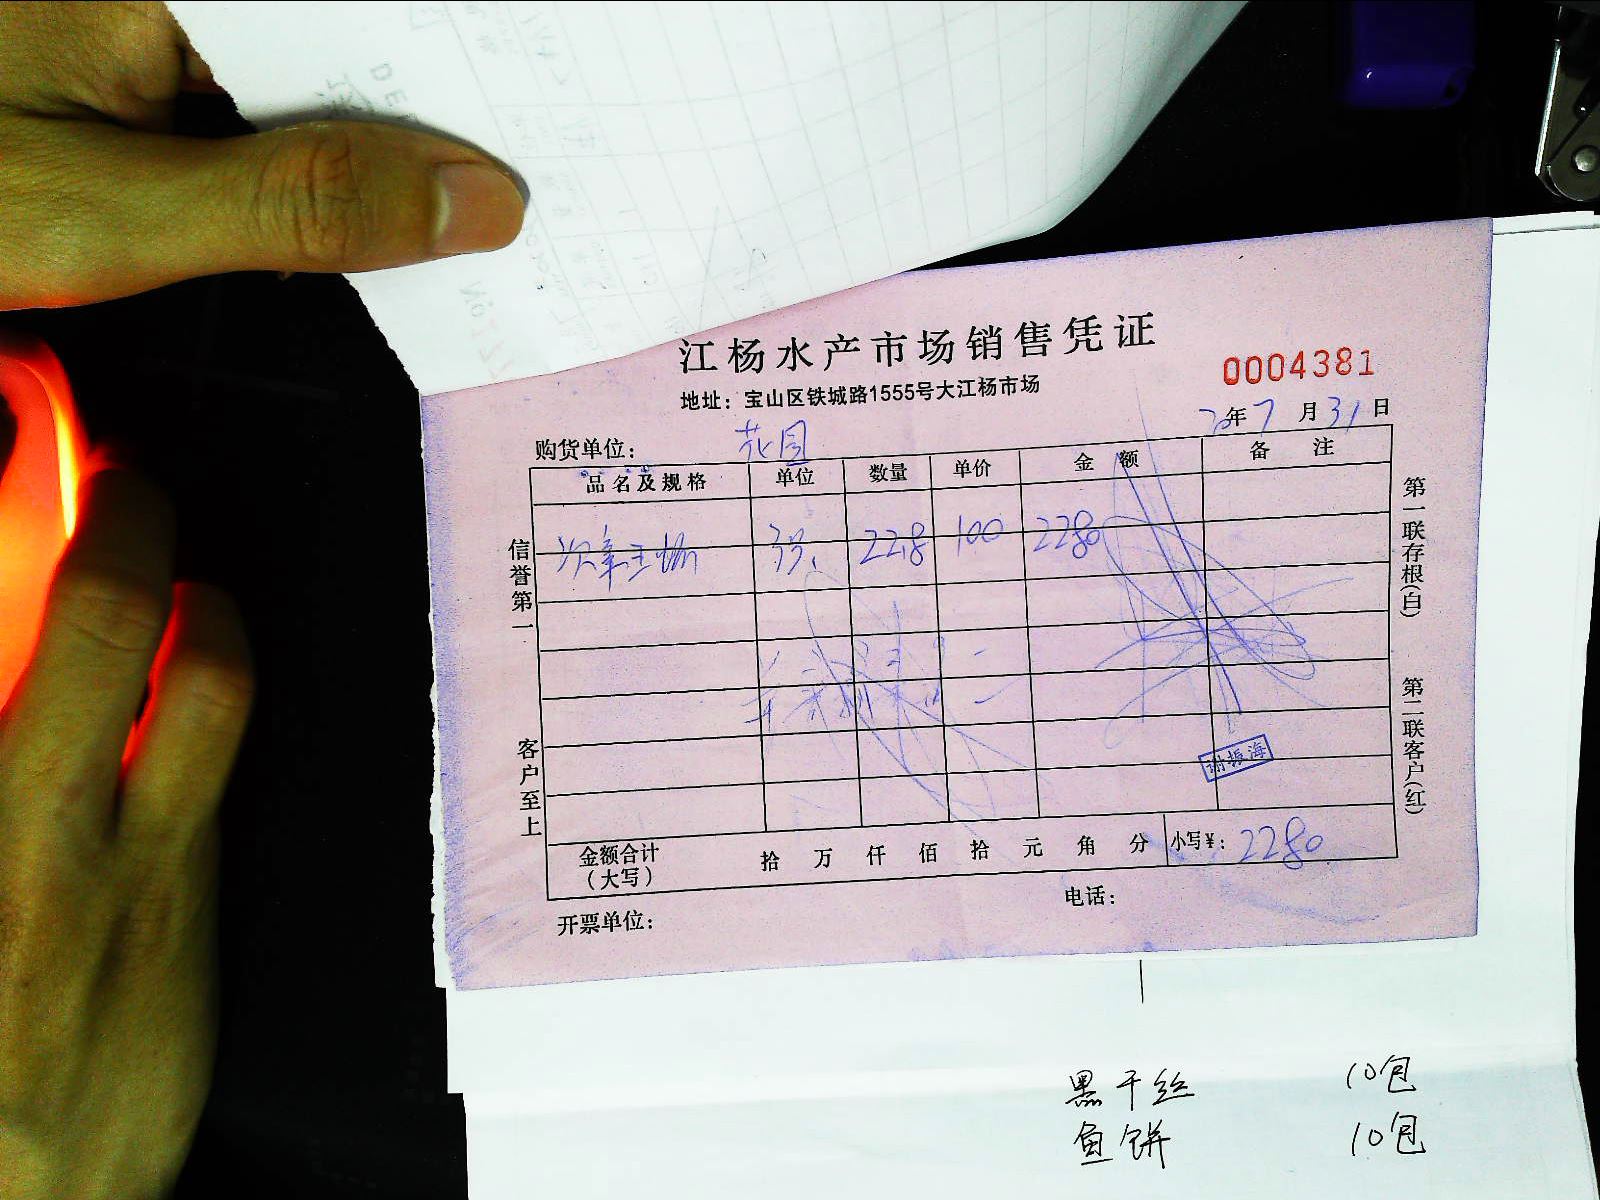 江杨水产市场销售凭证
0004381
地址：宝山区铁城路1555号大江杨市场
20年7月31日
购货单位： 花园
品名及规格 单位 数量 单价 金额 备注
22.8 100 2280
信誉第一
客户至上
第一联存根(白)
第二联客户(红)
谢振海
金额合计（大写） 拾 万 仟 佰 拾 元 角 分 小写¥：2280
开票单位： 电话：
黑干丝 10包
鱼饼 10包